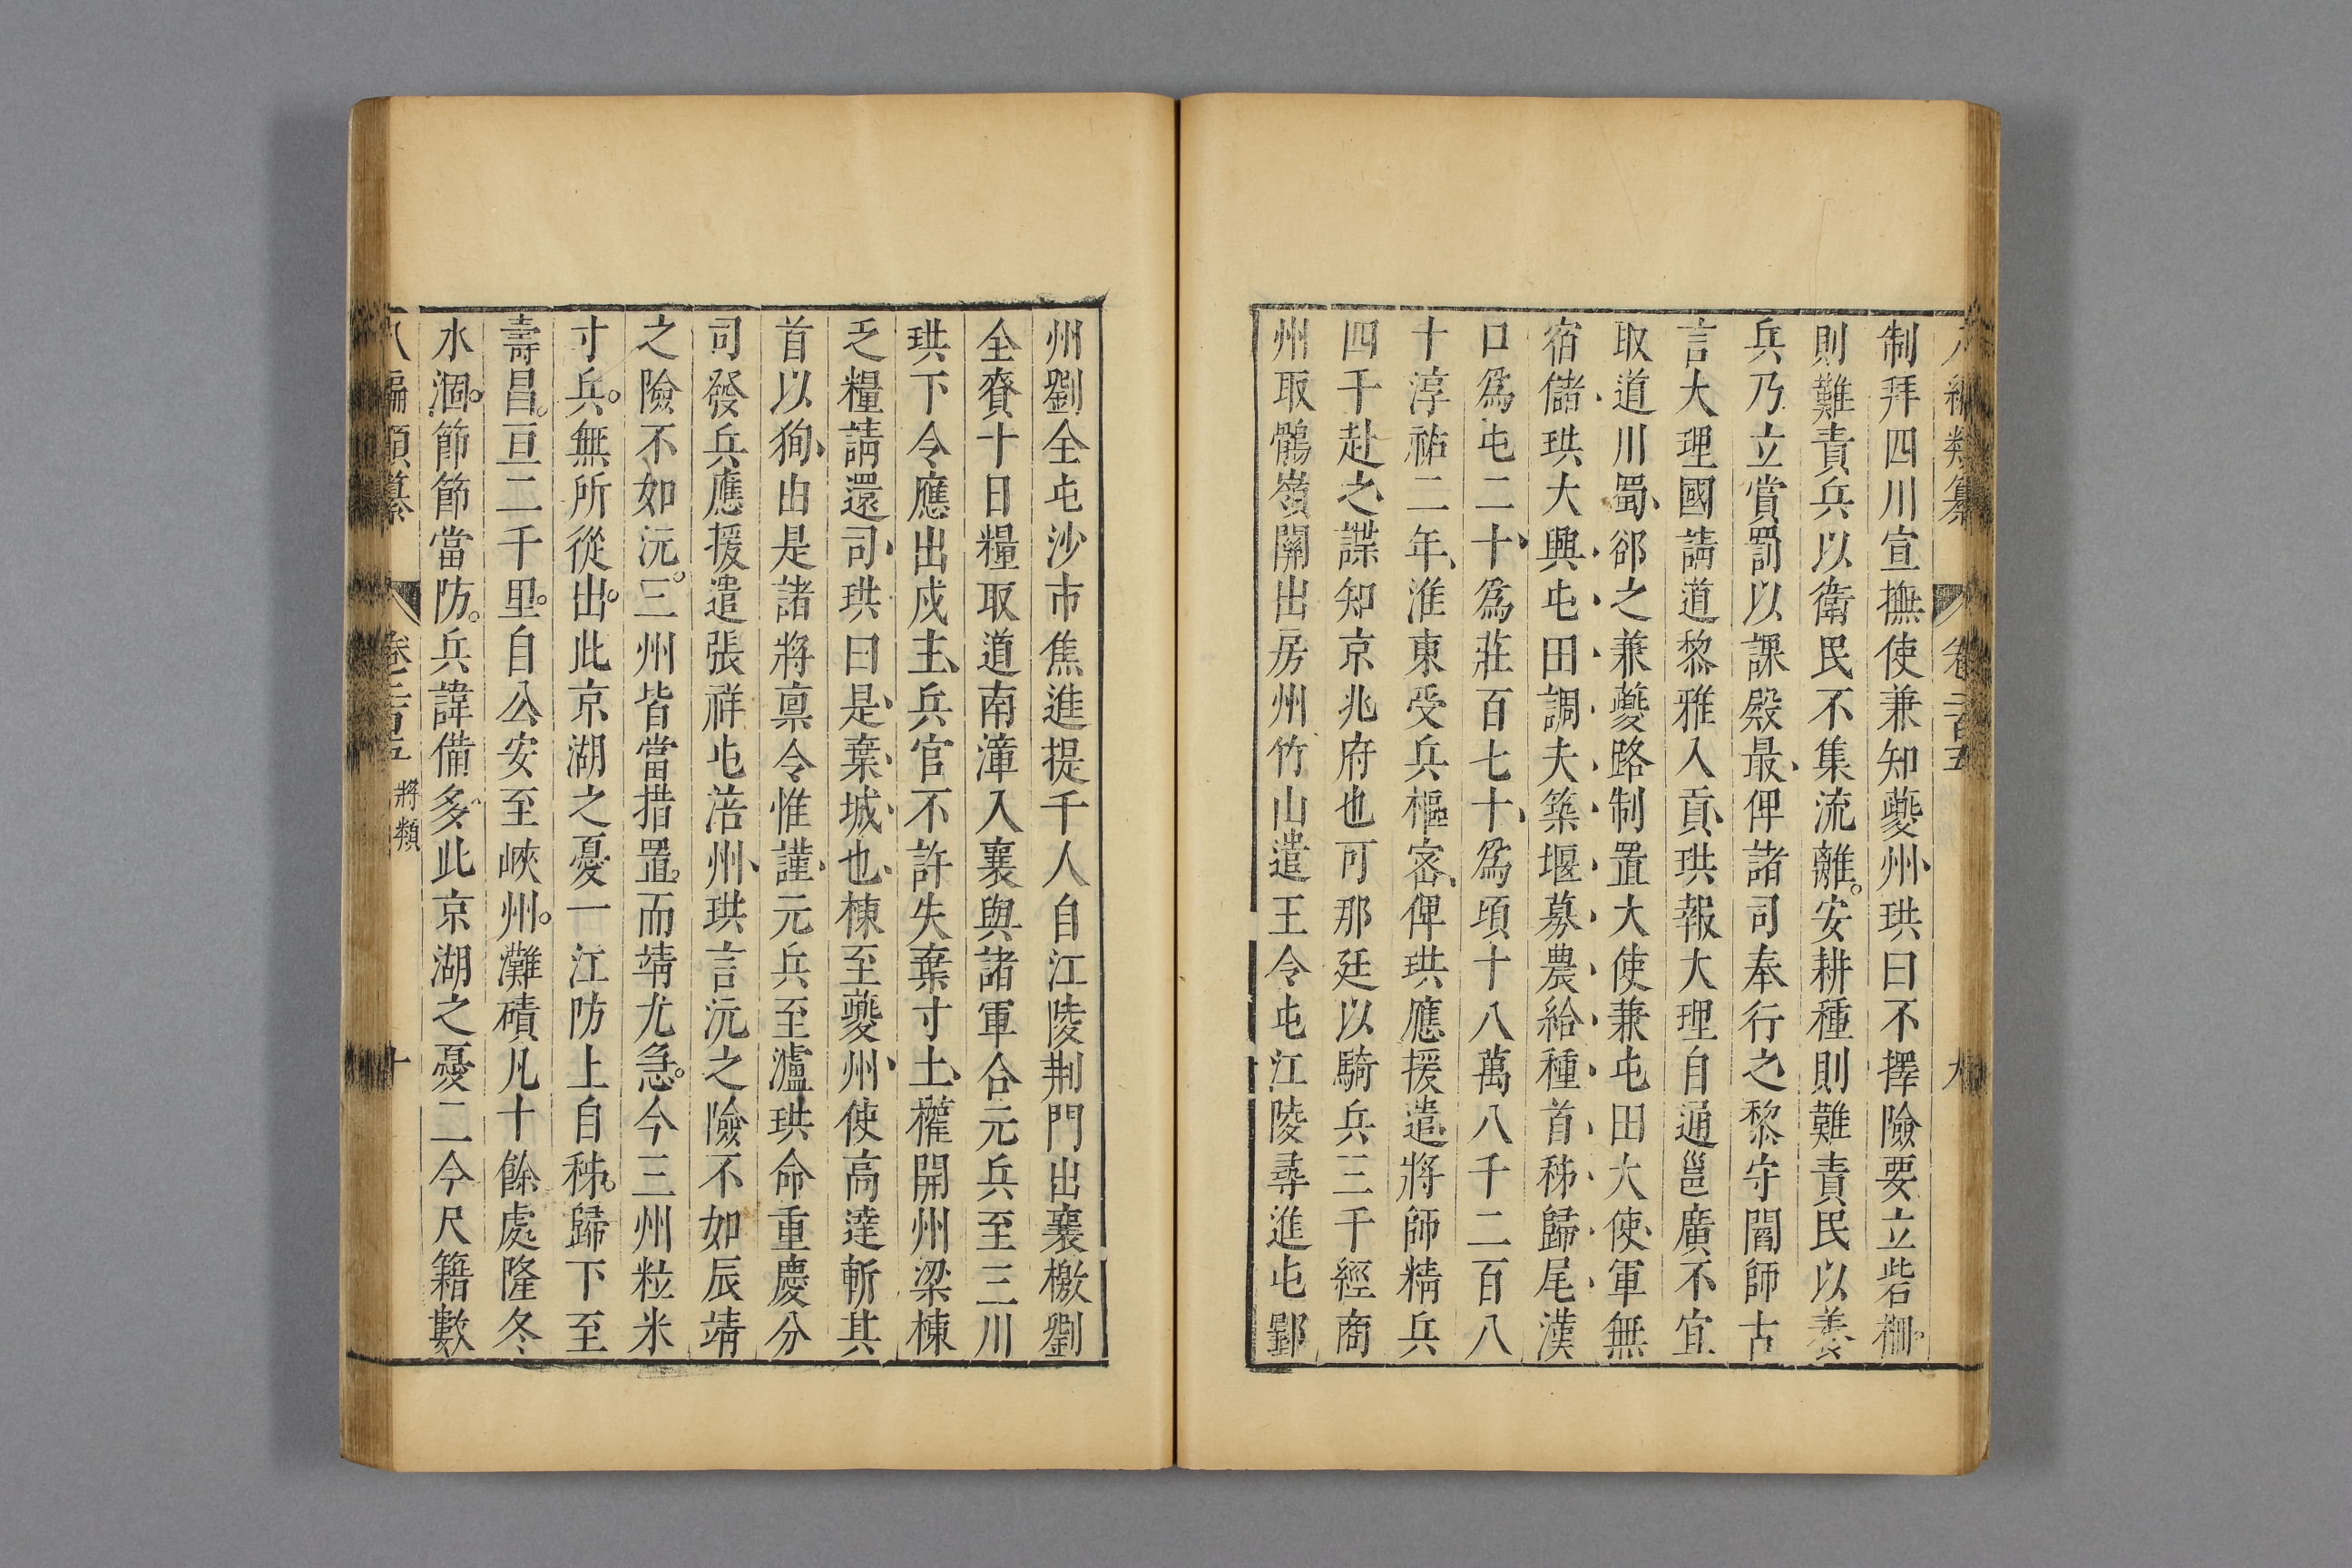 八編類纂 卷二百五 九
制拜四川宣撫使兼知夔州珙曰不擇險要立砦柵
則難責兵以衛民不集流離安耕種則難責民以養
兵乃立賞罰以課殿最俾諸司奉行之黎守閻師古
言大理國請道黎雅入貢珙報大理自通邕廣不宜
取道川蜀郤之兼夔路制置大使兼屯田大使軍無
宿儲珙大興屯田調夫築堰募農給種首秭歸尾漢
口爲屯二十爲莊百七十爲頃十八萬八千二百八
十淳祐二年淮東受兵樞密俾珙應援遣將師精兵
四千赴之諜知京兆府也可那廷以騎兵三千經商
州取鶻嶺關出房州竹山遣王令屯江陵尋進屯郢
州劉全屯沙市焦進提千人自江陵荆門出襄檄劉
全賫十日糧取道南漳入襄與諸軍合元兵至三川
珙下令應出戍主兵官不許失棄寸土權開州梁棟
乏糧請還司珙曰是棄城也棟至夔州使高達斬其
首以狥由是諸將禀令惟謹元兵至瀘珙命重慶分
司發兵應援遣張祥屯涪州珙言沅之險不如辰靖
之險不如沅三州皆當措置而靖尤急今三州粒米
寸兵無所從出此京湖之憂一江防上自秭歸下至
壽昌亘二千里自公安至峽州灘磧凡十餘處隆冬
水涸節節當防兵諱備多此京湖之憂二今尺籍數
八編類纂 卷二百五 將類 十